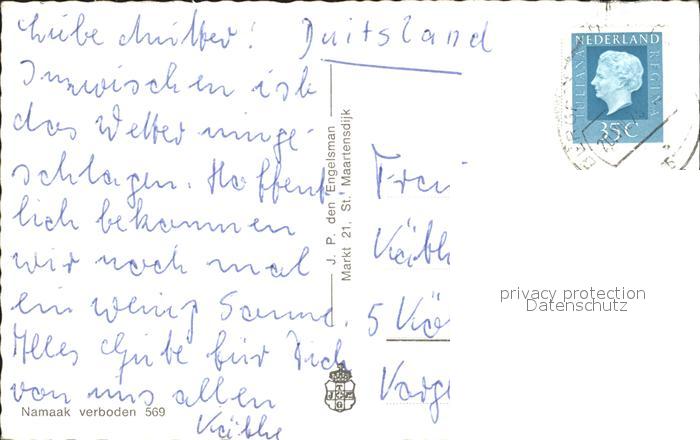 Liebe Mutter!
Duitsland
Inzwischen ist
das Wetter umge-
schlagen. Hoffent-
lich bekommen
wir noch mal
ein wenig Sonne.
Alles Gute für Dich
von uns allen
Käthe
Namaak verboden 569
J. P. den Engelsman
Markt 21, St. Maartensdijk
NEDERLAND
JULIANA
REGINA
35c
Frau
Käth
5 Kö
privacy protection
Datenschutz